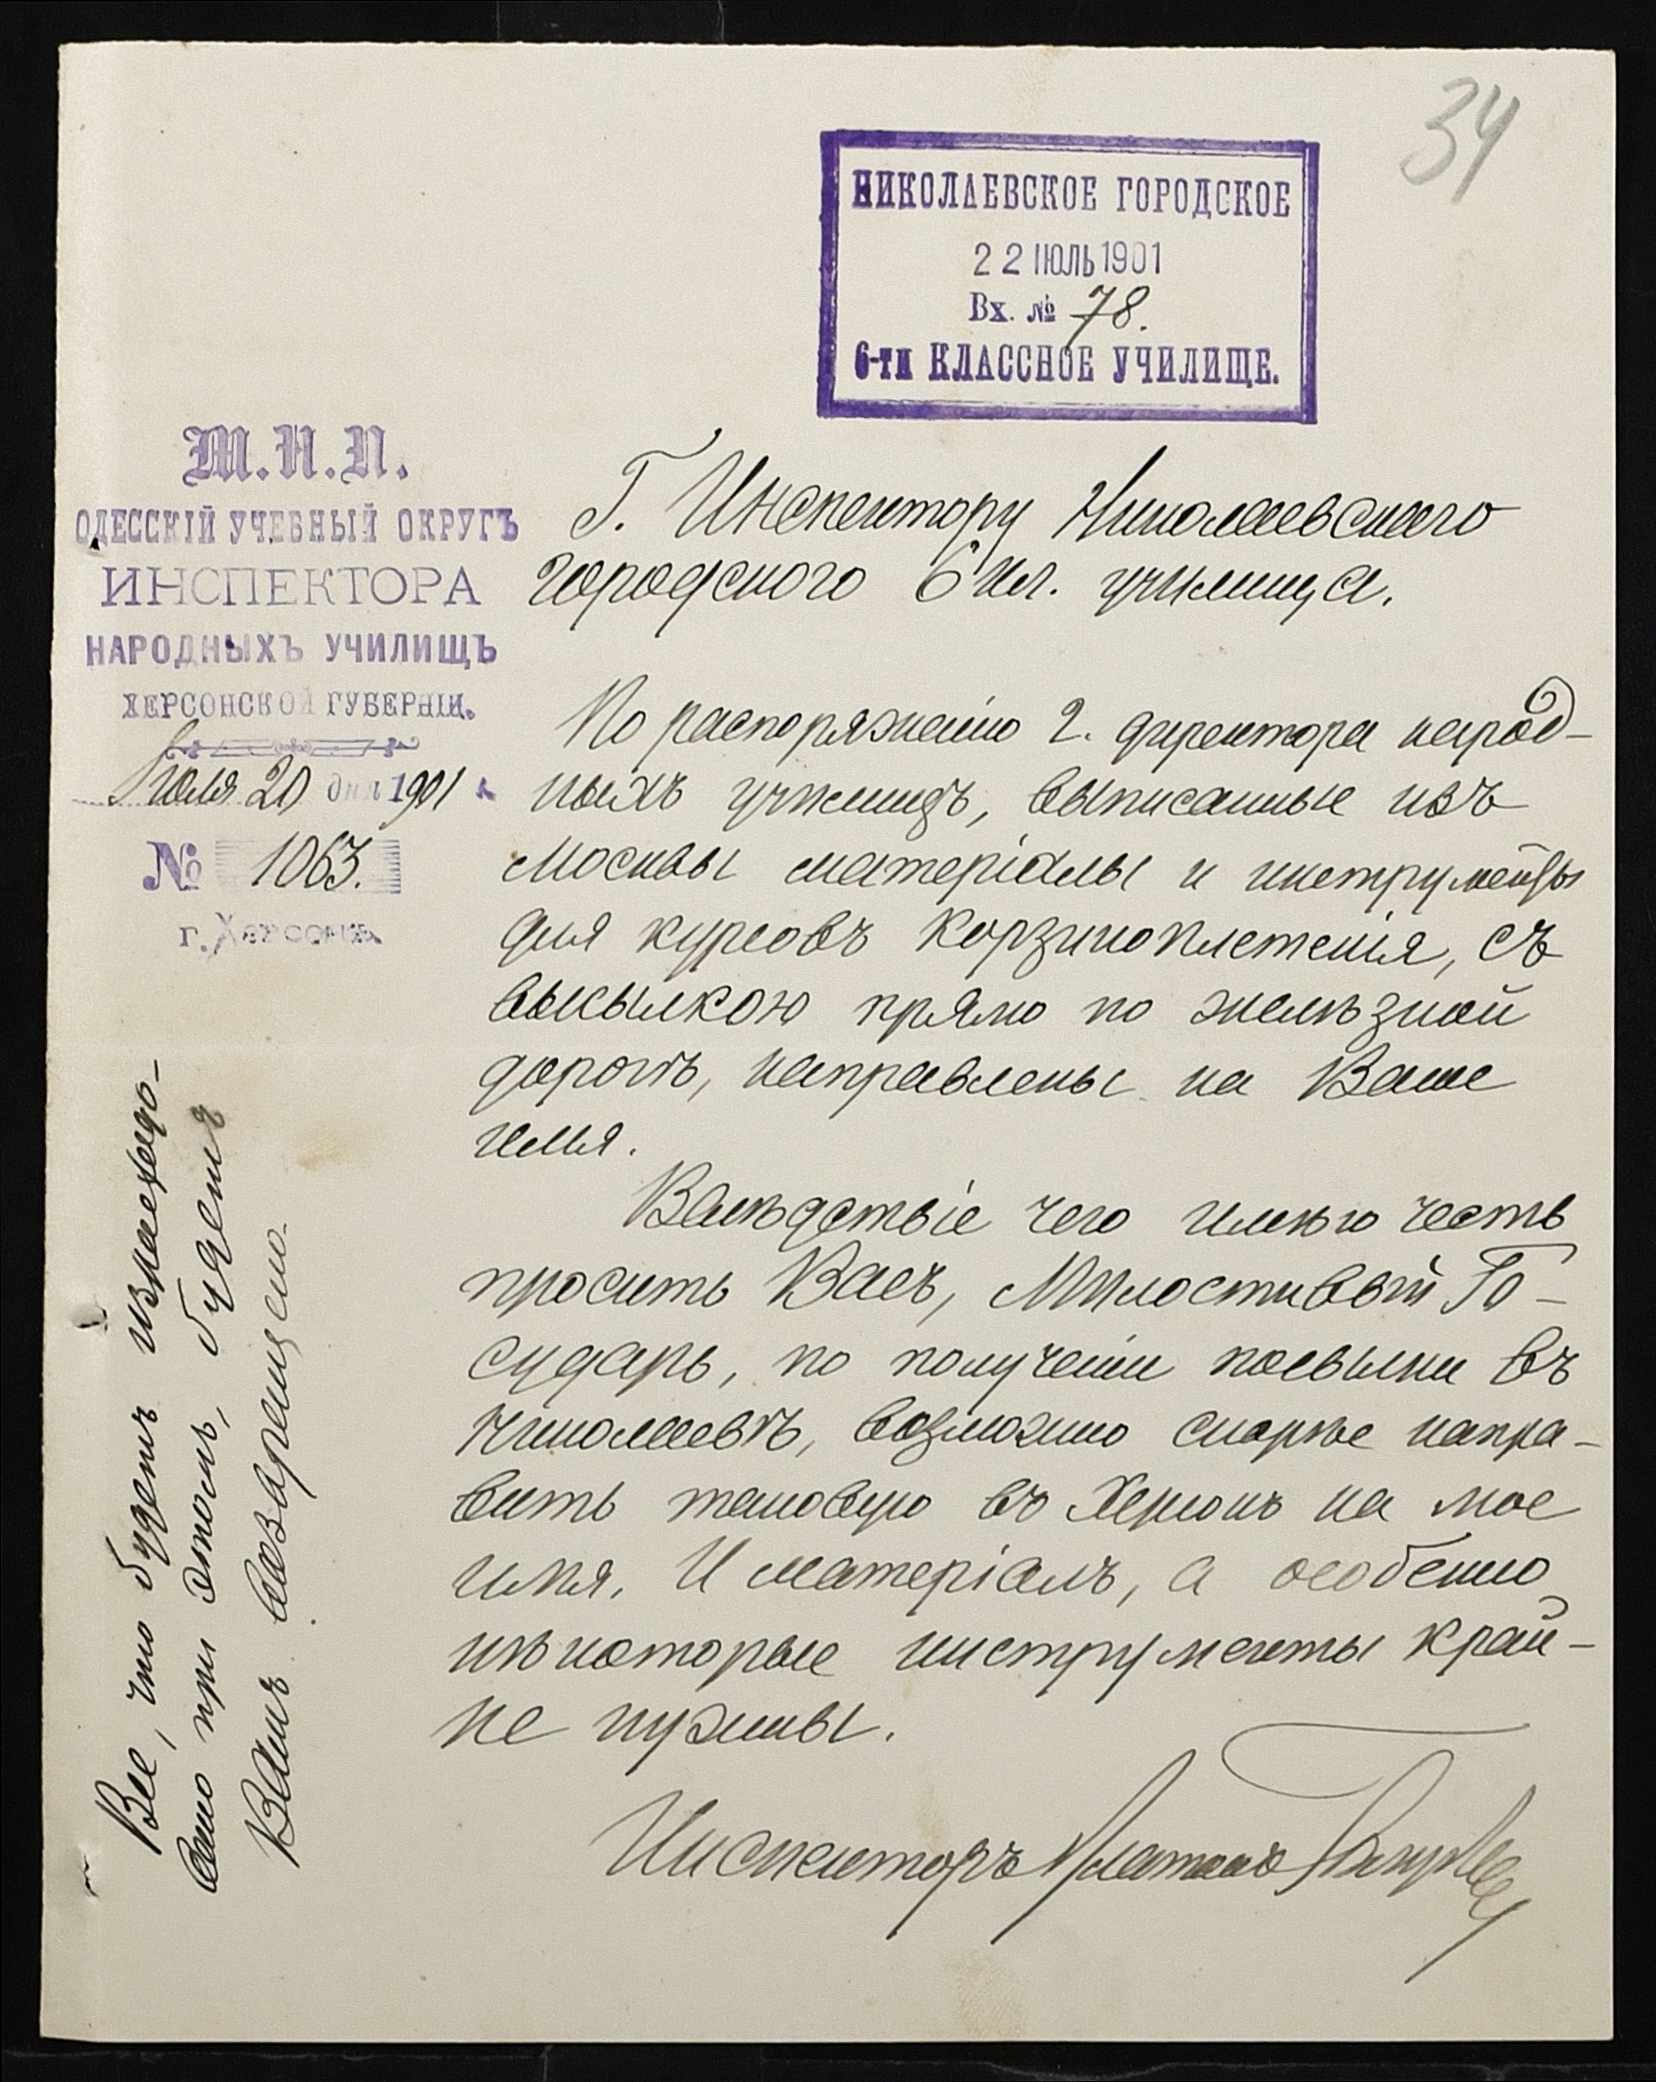 34
НИКОЛАЕВСКОЕ ГОРОДСКОЕ
22 ІЮЛЬ 1901
Вх. № 78.
6-ти КЛАССНОЕ УЧИЛИЩЕ.
М.Н.П.
ОДЕССКІЙ УЧЕБНЫЙ ОКРУГЪ
ИНСПЕКТОРА
НАРОДНЫХЪ УЧИЛИЩЪ
ХЕРСОНСКОЙ ГУБЕРНІИ.
Іюля 20 дня 1901 г.
№ 1063.
г. Херсонъ.
Г. Инспектору Николаевскаго
городского 6 кл. училища.
По распоряженію г. директора народ-
ныхъ училищъ, выписанные изъ
Москвы матеріалы и инструменты
для курсовъ корзиноплетенія, съ
высылкою прямо по желѣзной
дорогѣ, направлены на Ваше
имя.
Вслѣдствіе чего имѣю честь
просить Васъ, Милостивый Го-
сударь, по полученіи посылки въ
Николаевѣ, возможно скорѣе напра-
вить таковую въ Херсонъ на мое
имя. И матеріалъ, а особенно
нѣкоторые инструменты край-
не нужны.
Инспекторъ Платонъ
Все, что будетъ израсходо-
вано при этомъ, будетъ
Вамъ возвращено.